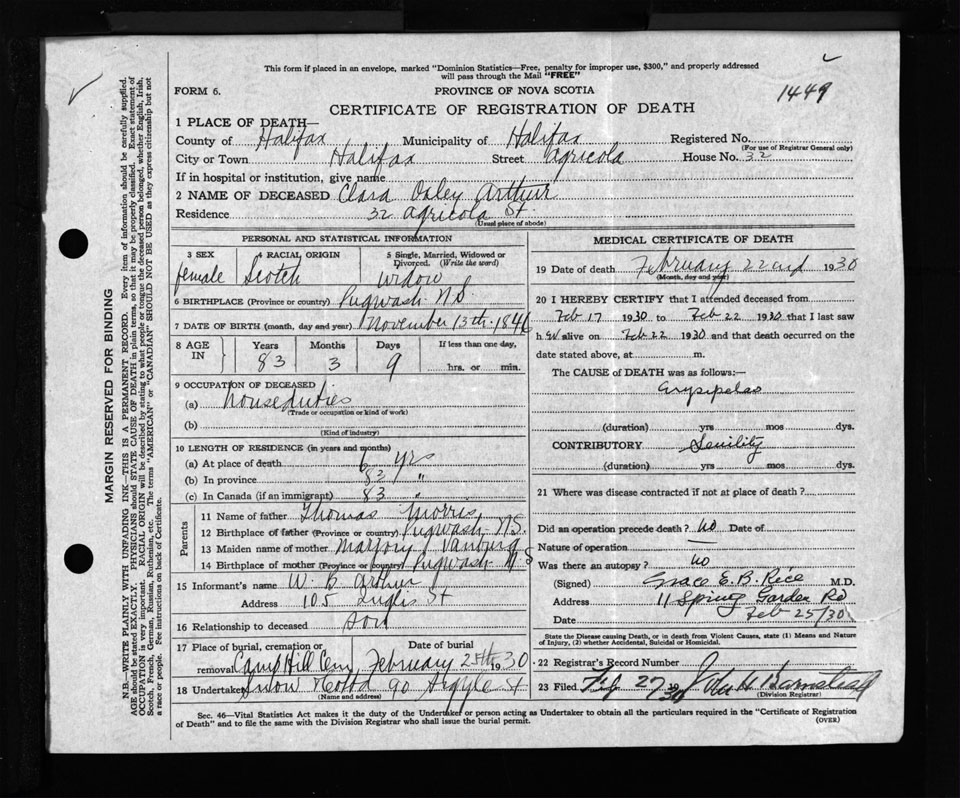 This form if placed in an envelope, marked "Dominion Statistics—Free, penalty for improper use, $300," and properly addressed
will pass through the Mail "FREE"
FORM 6.
PROVINCE OF NOVA SCOTIA
1449
CERTIFICATE OF REGISTRATION OF DEATH
1 PLACE OF DEATH—
County of Halifax Municipality of Halifax Registered No.
(For use of Registrar General only)
City or Town Halifax Street Agricola House No. 32
If in hospital or institution, give name
2 NAME OF DECEASED Clara Oxley Arthur
Residence 32 Agricola St
(Usual place of abode)
PERSONAL AND STATISTICAL INFORMATION
3 SEX female
4 RACIAL ORIGIN Scotch
5 Single, Married, Widowed or Divorced. (Write the word) Widow
6 BIRTHPLACE (Province or country) Pugwash N.S.
7 DATE OF BIRTH (month, day and year) November 13th 1846
8 AGE IN Years 83 Months 3 Days 9 If less than one day, hrs. or min.
9 OCCUPATION OF DECEASED
(a) Houseduties
(Trade or occupation or kind of work)
(b)
(Kind of industry)
10 LENGTH OF RESIDENCE (in years and months)
(a) At place of death 6 yrs
(b) In province 83 "
(c) In Canada (if an immigrant) 83 "
Parents
11 Name of father Thomas Morris
12 Birthplace of father (Province or country) Pugwash N.S.
13 Maiden name of mother Marjory
14 Birthplace of mother (Province or country) Pugwash N.S
15 Informant's name W. B. Arthur
Address 105 Inglis St
16 Relationship to deceased son
17 Place of burial, cremation or removal Camp Hill Cem Date of burial February 25th 1930
18 Undertaker Snow & Co Ltd 90 Argyle St
(Name and address)
MEDICAL CERTIFICATE OF DEATH
19 Date of death February 22nd 1930
(Month, day and year)
20 I HEREBY CERTIFY that I attended deceased from
Feb 17 1930 to Feb 22 1930 that I last saw
h er alive on Feb 22 1930 and that death occurred on the
date stated above, at m.
The CAUSE of DEATH was as follows:—
Erysipelas
(duration) yrs mos dys.
CONTRIBUTORY Senility
(duration) yrs mos dys.
21 Where was disease contracted if not at place of death?
Did an operation precede death? no Date of
Nature of operation
Was there an autopsy? no
(Signed) Grace E. B. Rice M.D.
Address 11 Spring Garden Rd
Date Feb 25/30
State the Disease causing Death, or in death from Violent Causes, state (1) Means and Nature
of Injury, (2) whether Accidental, Suicidal or Homicidal.
22 Registrar's Record Number
23 Filed 27
(Division Registrar)
Sec. 46—Vital Statistics Act makes it the duty of the Undertaker or person acting as Undertaker to obtain all the particulars required in the "Certificate of Registration
of Death" and to file the same with the Division Registrar who shall issue the burial permit.
(OVER)
MARGIN RESERVED FOR BINDING
N.B.—WRITE PLAINLY WITH UNFADING INK—THIS IS A PERMANENT RECORD. Every item of information should be carefully supplied.
AGE should be stated EXACTLY. PHYSICIANS should STATE CAUSE OF DEATH in plain terms, so that it may be properly classified. Exact statement of
OCCUPATION is very important. RACIAL ORIGIN will be described by stating to what people or tongue the deceased person belonged, whether English, Irish,
Scotch, French, German, Russian, Ruthenian, etc. The terms "AMERICAN" or "CANADIAN" SHOULD NOT BE USED as they express citizenship but not
a race or people. See instructions on back of Certificate.